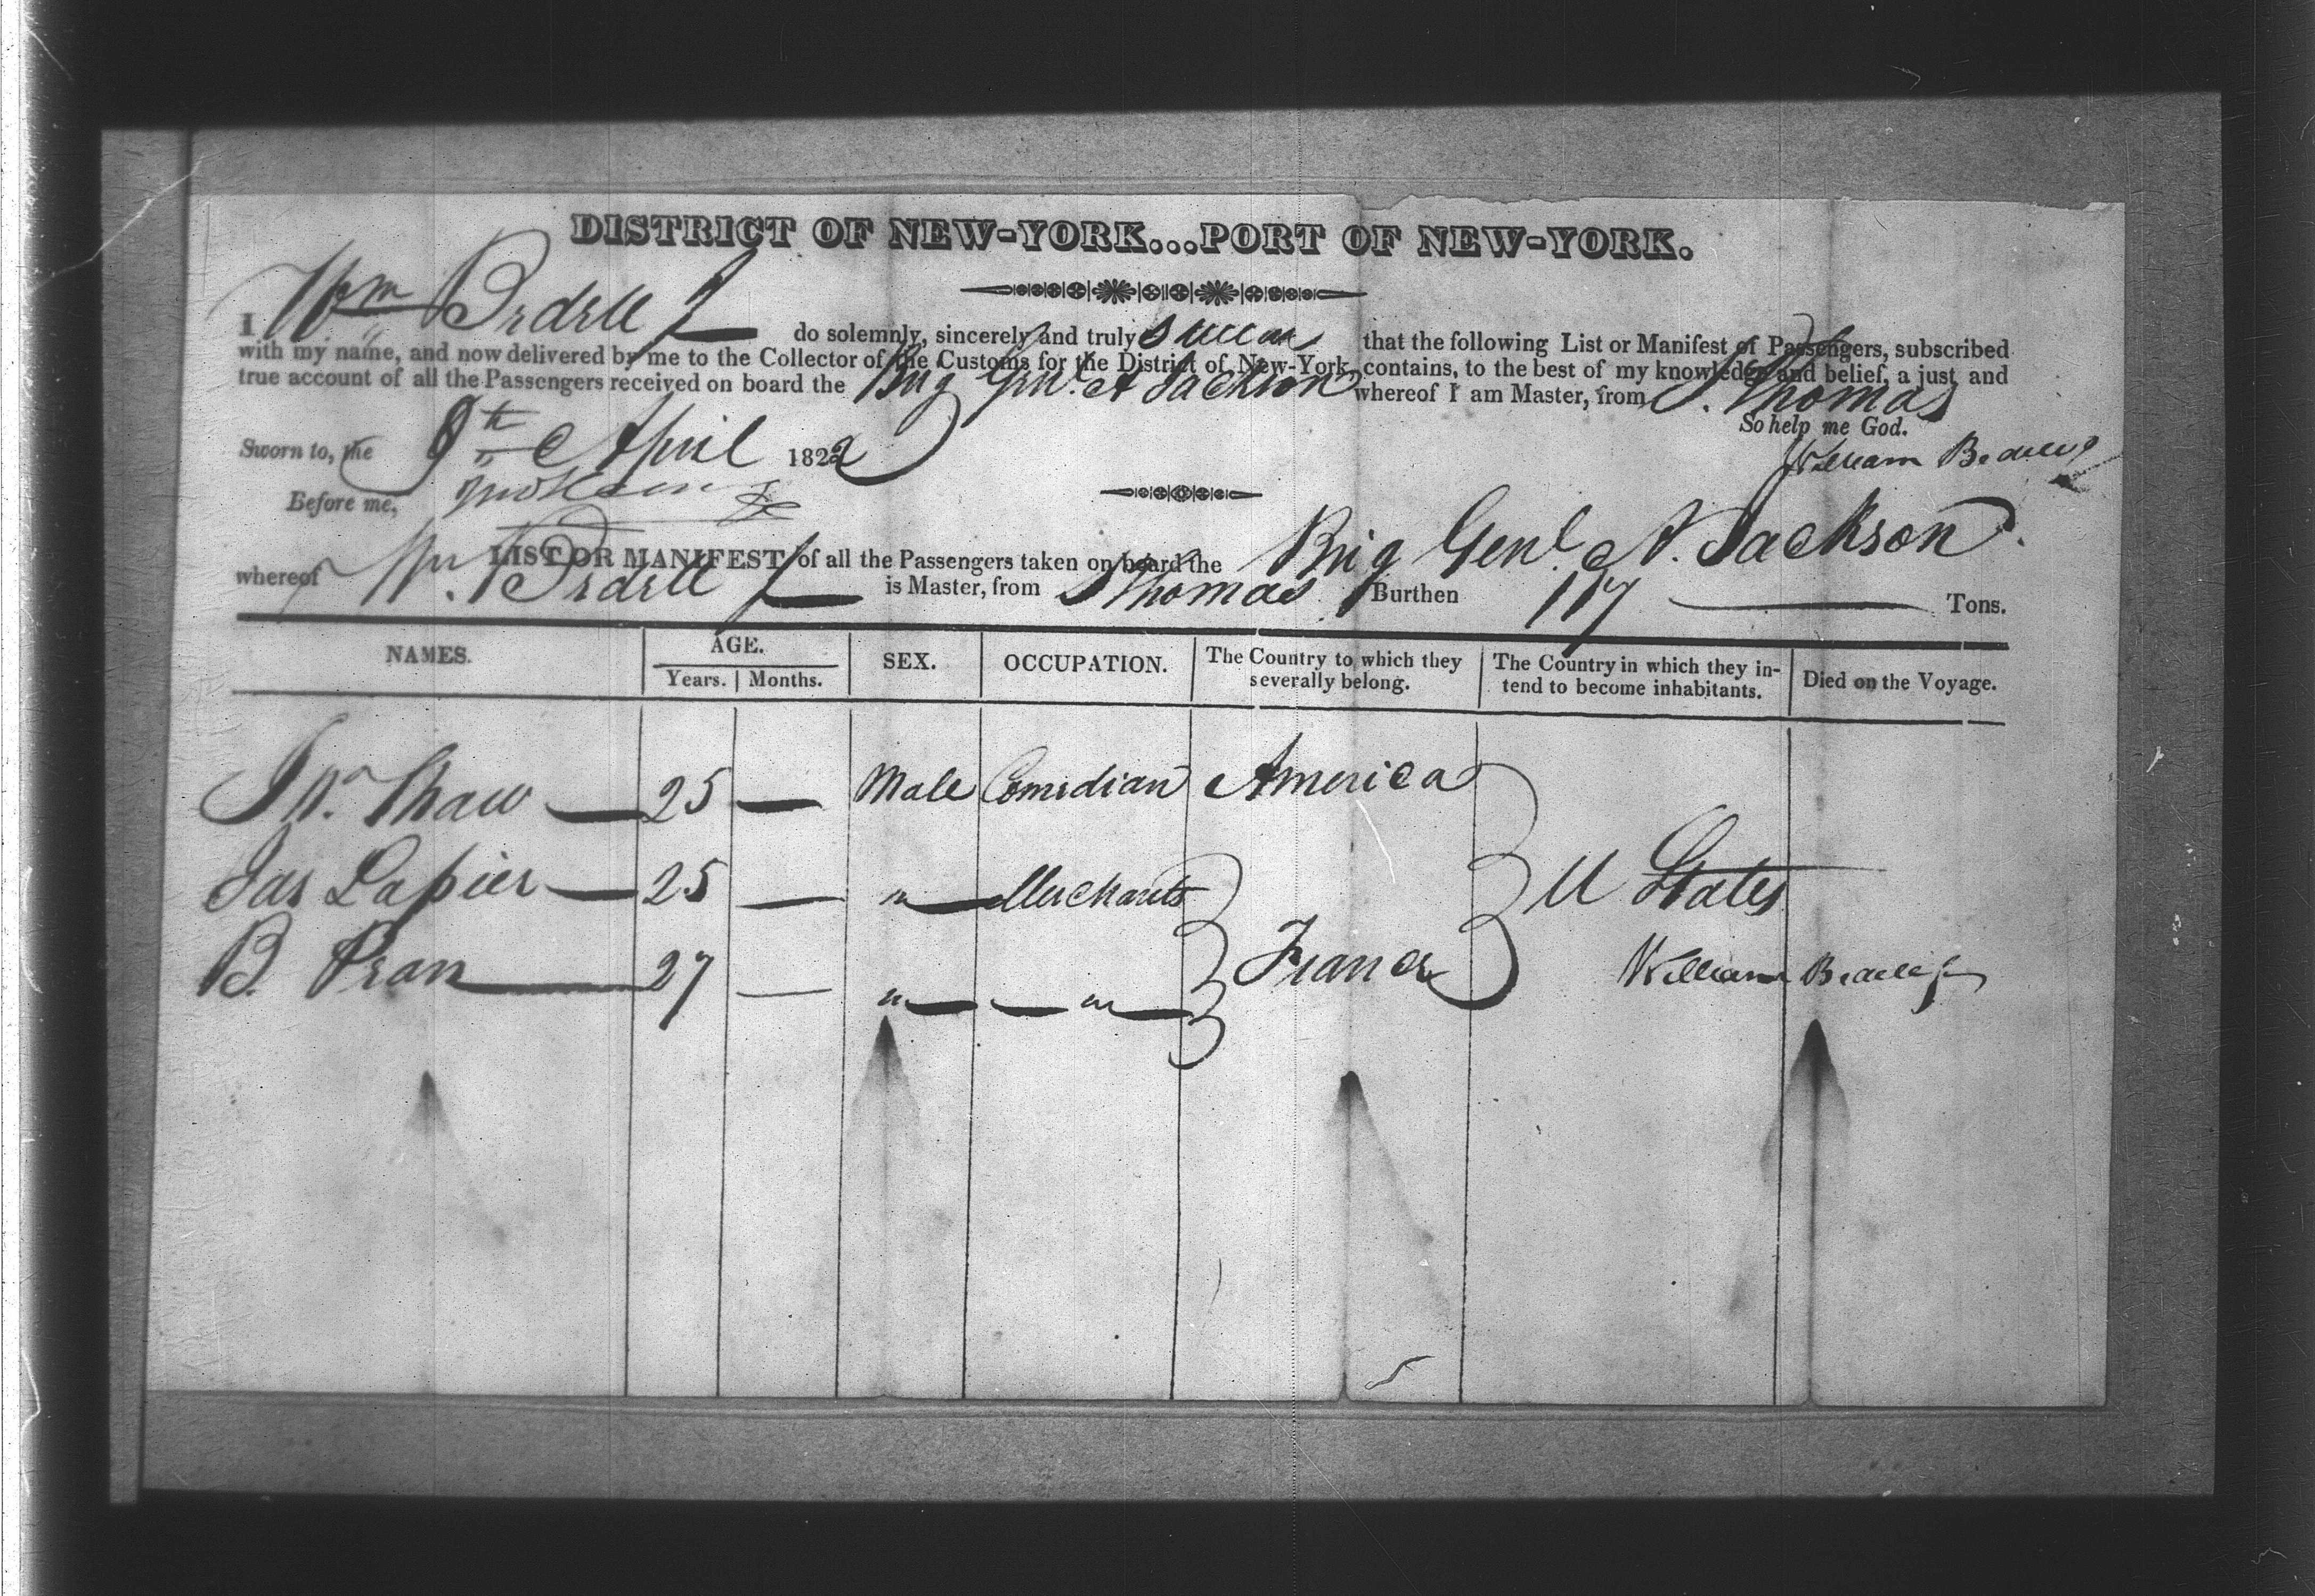 DISTRICT OF NEW-YORK...PORT OF NEW-YORK.
I Wm Bedell Jr do solemnly, sincerely and truly swear that the following List or Manifest of Passengers, subscribed
with my name, and now delivered by me to the Collector of the Customs for the District of New-York, contains, to the best of my knowledge and belief, a just and
true account of all the Passengers received on board the Brig Genl. A Jackson whereof I am Master, from St. Thomas
So help me God.
Sworn to, the 8th April 1822
William Bedell Jr
Before me,
LIST OR MANIFEST of all the Passengers taken on board the Brig Genl. A. Jackson
whereof Wm Bedell Jr is Master, from St Thomas Burthen 117 Tons.
NAMES. AGE. SEX. OCCUPATION. The Country to which they severally belong. The Country in which they intend to become inhabitants. Died on the Voyage.
Years. Months.
Jno. Shaw 25 — Male Comedian America
Jas Lapier 25 — " Merchants
U States
B. Pran 27 — " " France
William Bedell Jr